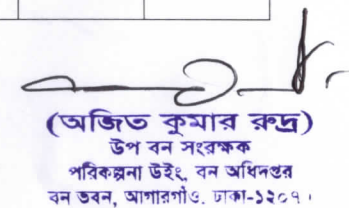 (অজিত কুমার রুদ্র)
উপ বন সংরক্ষক
পরিকল্পনা উইং, বন অধিদপ্তর
বন ভবন, আগারগাঁও, ঢাকা-১২০৭।